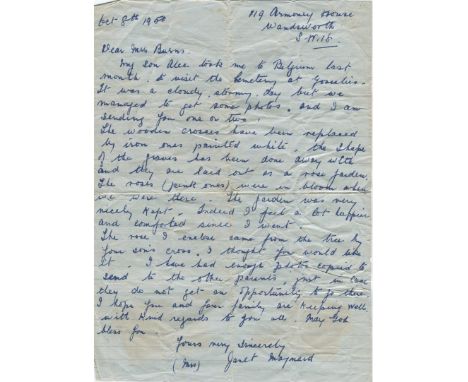 Oct 8th 19
119 Armoury House
Wandsworth
S.W.18.
Dear Mrs Burns.
My son Alec took me to Belgium last
month. to visit the Cemetery at Gosselies.
It was a cloudy, stormy. day but we
managed to get some photos. and I am
sending you one or two.
The wooden crosses have been replaced
by iron ones painted white. the shape
of the graves has been done away with
and they are laid out as a rose garden.
The roses (pink ones) were in bloom when
we were there. The garden was very
nicely kept. Indeed I feel a lot happier
and comforted since I went.
The rose I enclose came from the tree by
your son's cross. I thought you would like
it. I have had enough photos copied to
send to the other parents just in case
they do not get an opportunity to go there
I hope you and your family are keeping well.
with kind regards to you all. May God
bless you.
Yours very sincerely
(Mrs) Janet Maynard